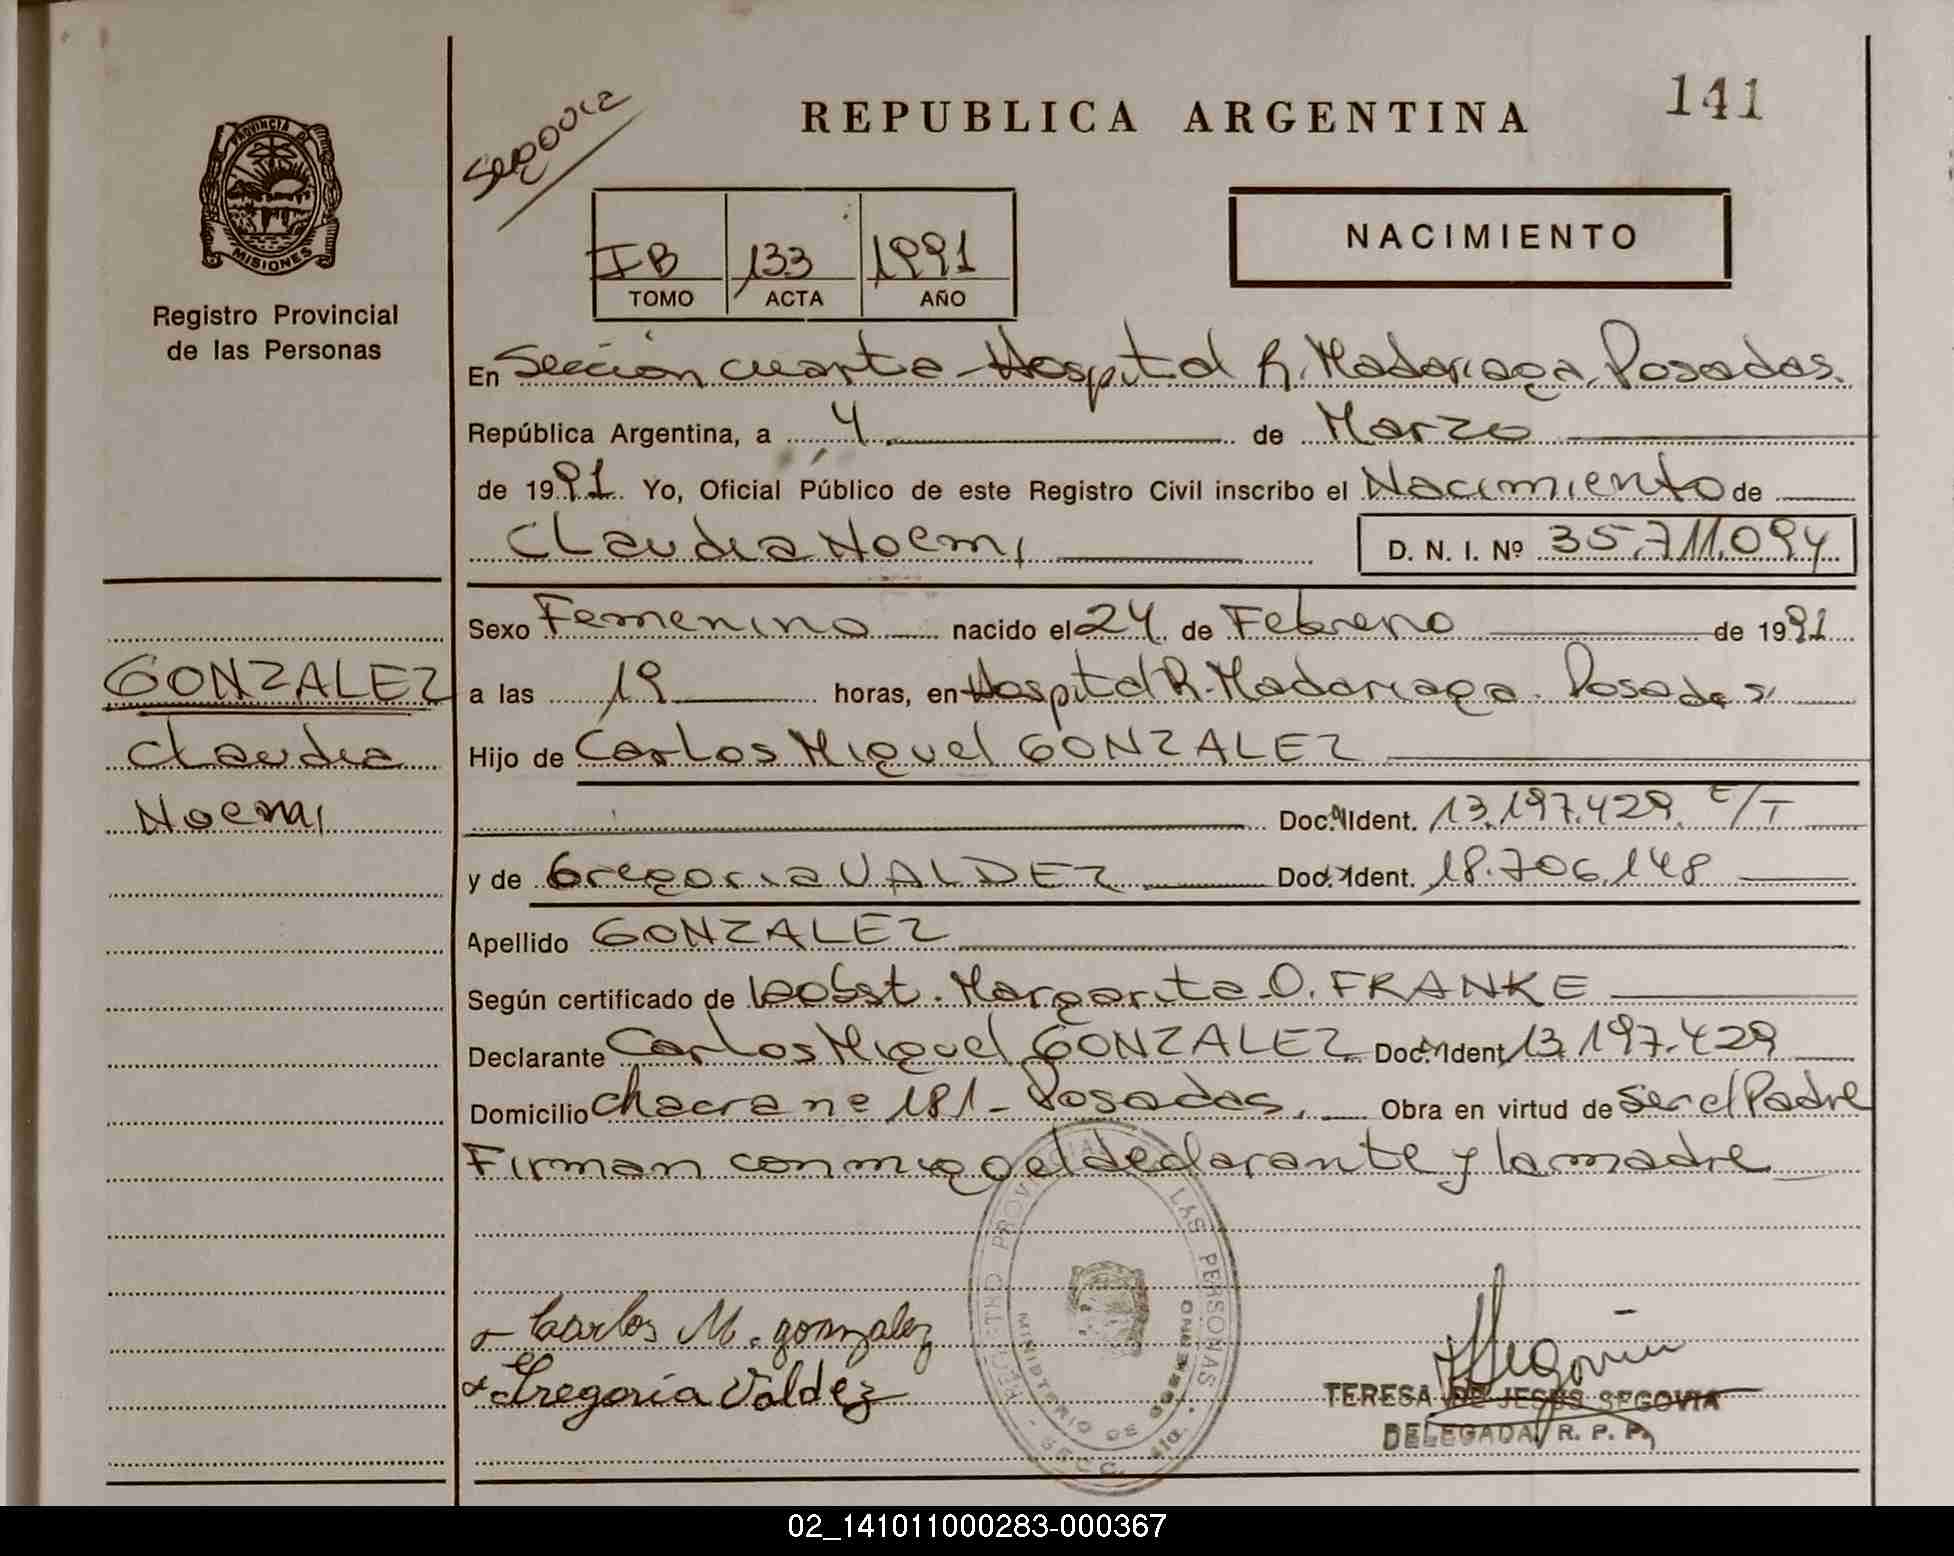 PROVINCIA DE
MISIONES
Registro Provincial
de las Personas
Segovia
REPUBLICA ARGENTINA
141
IB 133 1991
TOMO ACTA AÑO
NACIMIENTO
En Sección cuarta - Hospital R. Madariaga. Posadas.
República Argentina, a 4 de Marzo
de 1991. Yo, Oficial Público de este Registro Civil inscribo el Nacimiento de
Claudia Noemi D. N. I. Nº 35.711.094
Sexo Femenino nacido el 24 de Febrero de 1991
GONZALEZ
Claudia
Noemi
a las 19 horas, en Hospital R. Madariaga. Posadas.
Hijo de Carlos Miguel GONZALEZ
Doc. Ident. 13.197.429. E/T
y de Gregoria VALDEZ Doc. Ident. 18.706.148
Apellido GONZALEZ
Según certificado de la obst. Margarita O. FRANKE
Declarante Carlos Miguel GONZALEZ Doc. Ident. 13.197.429
Domicilio Chacra nº 181 - Posadas. Obra en virtud de ser el Padre
Firman conmigo el declarante y la madre
REGISTRO PROVINCIAL LAS PERSONAS
MINISTERIO DE GOBIERNO
SECC.
Carlos M. gonzalez
Gregoria Valdez
Segovia
TERESA DE JESUS SEGOVIA
DELEGADA R. P. P.
02_141011000283-000367